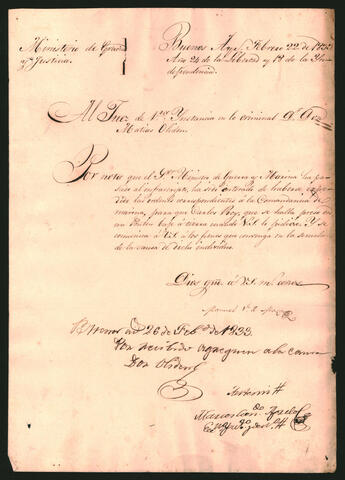 Ministerio de Gracia
y Justicia.
Buenos Ays. Febrero 22 de 1833
Año 24 de la Libertad y 18 de la Yn-
dependencia.
Al Juez de 1ra. Ynstancia en lo criminal
Matias Oliden.
Por nota que el Sor. Ministro de Guerra y Marina ha pa-
sado al infrascripto, ha sido enterado de haberse espe-
dido las ordenes correspondientes à la Comandancia de
marina, para que Carlos que se halla preso en
un Ponton baje à tierra cuando V.S. lo pidiere. Y se
comunica à V.S. à los fines que convenga en la
de la causa de dicho individuo.
Dios gue. à V.S. ms. años
Manuel
Buenos 26 de Febo. de 1833.
Por recibido agreguese a la causa
Oliden
Ante mi
Marcos